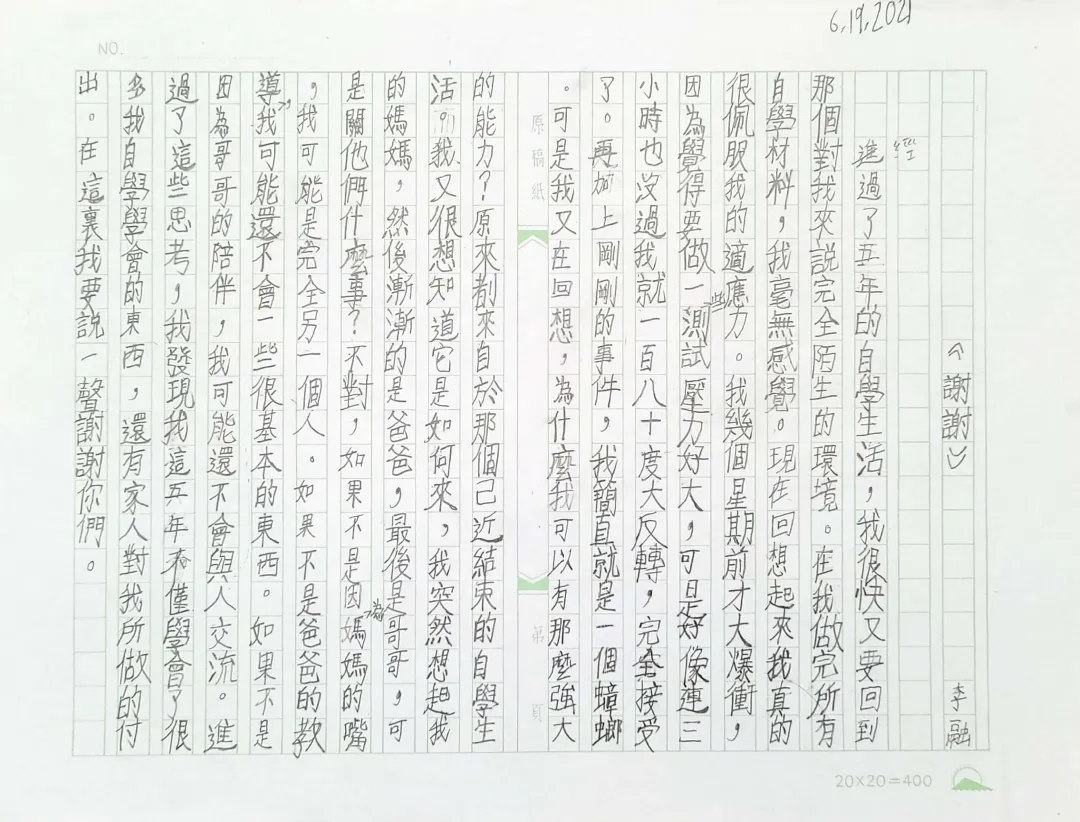 6,19,2021
NO.
<謝謝>
李融
經
進過了五年的自學生活，我很快又要回到
那個對我來說完全陌生的環境。在我做完所有
自學材料，我毫無感覺。現在回想起來我真的
很佩服我的適應力。我幾個星期前才大爆衝，
因為覺得要做一些測試壓力好大，可是好像連三
小時也沒過我就一百八十度大反轉，完全接受
了。再加上剛剛的事件，我簡直就是一個蟑螂
。可是我又在回想，為什麼我可以有那麼強大
原稿紙
第 頁
的能力？原來都來自於那個已近結束的自學生
活。我又很想知道它是如何來，我突然想起我
的媽媽，然後漸漸的是爸爸，最後是哥哥，可
是關他們什麼事？不對，如果不是因為媽媽的嘴
，我可能是完全另一個人。如果不是爸爸的教
導，我可能還不會一些很基本的東西。如果不是
因為哥哥的陪伴，我可能還不會與人交流。進
過了這些思考，我發現我這五年來僅學會了很
多我自學學會的東西，還有家人對我所做的付
出。在這裏我要說一聲謝謝你們。
20×20=400